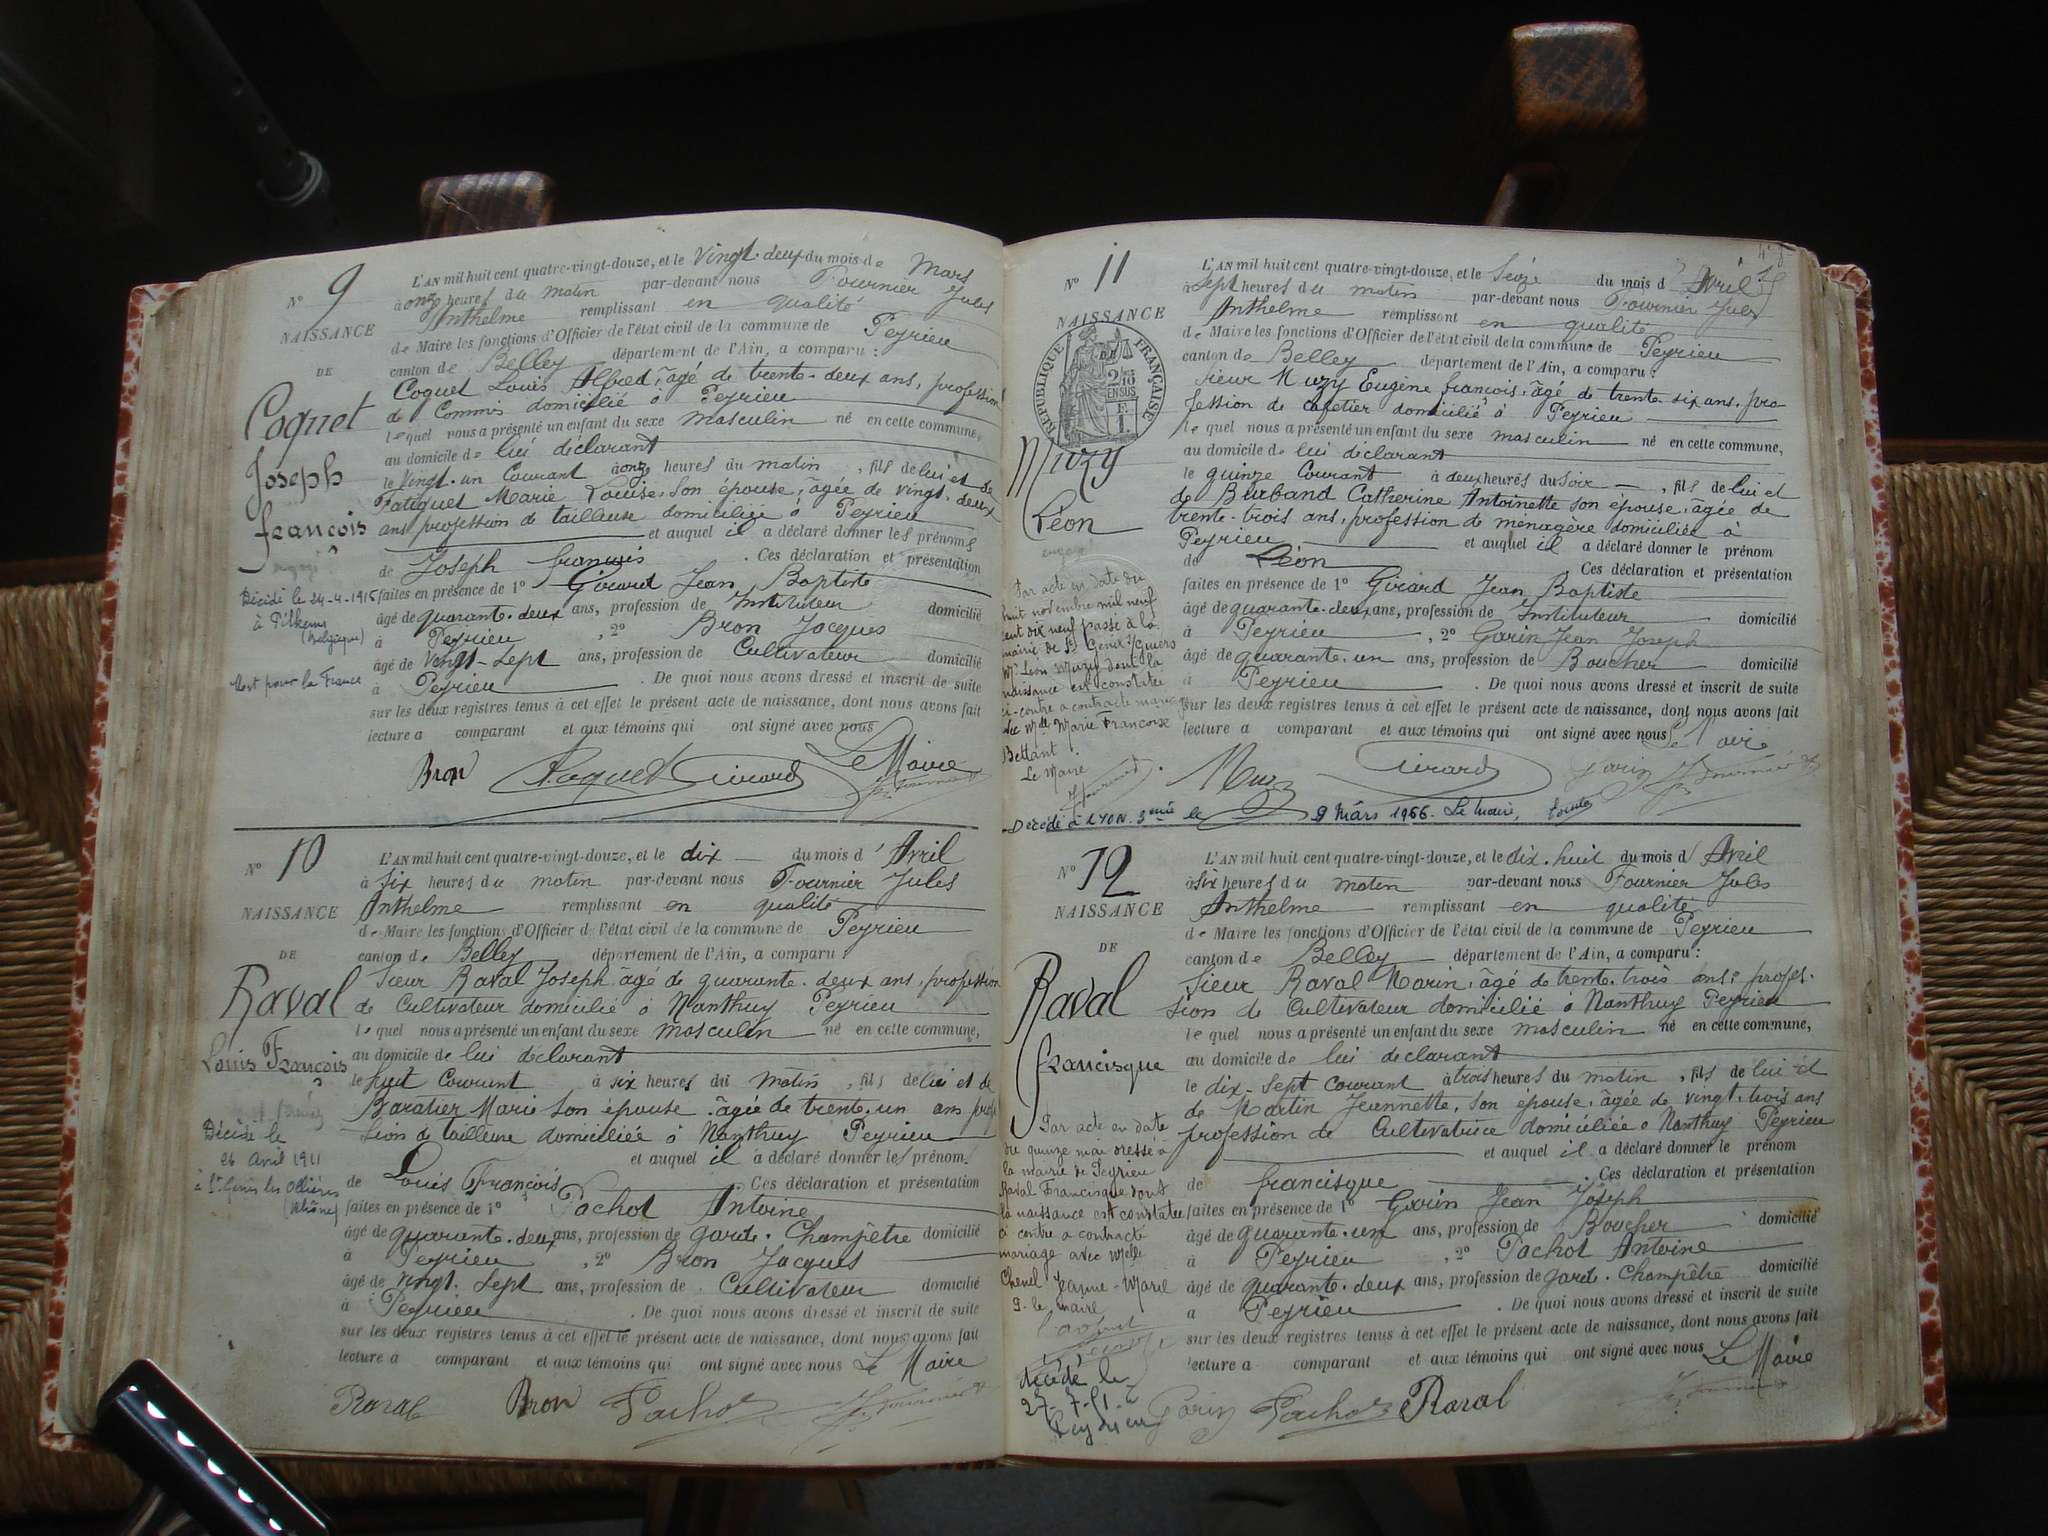 N° 9
NAISSANCE
DE
Coquet
Joseph
françois
Décédé le 24-4-1915
à Pilkem
(Belgique)
Mort pour la France
L'AN mil huit cent quatre-vingt-douze, et le Vingt-deux du mois de Mars
à onze heures du matin par-devant nous Fournier Jules
Anthelme remplissant en qualité
de Maire les fonctions d'Officier de l'état civil de la commune de Peyrieu
canton de Belley département de l'Ain, a comparu :
Coquet Louis Alfred, âgé de trente-deux ans, profession
de Commis domicilié à Peyrieu
lequel nous a présenté un enfant du sexe masculin né en cette commune,
au domicile de lui déclarant
le vingt-un Courant à onze heures du matin, fils de lui et de
Fatiguet Marie Louise, son épouse, âgée de vingt-deux
ans, profession de tailleuse domiciliée à Peyrieu
et auquel il a déclaré donner les prénoms
de Joseph françois. Ces déclaration et présentation
faites en présence de 1° Girard Jean Baptiste
âgé de quarante-deux ans, profession de Instituteur domicilié
à Peyrieu, 2° Bron Jacques
âgé de vingt-sept ans, profession de Cultivateur domicilié
à Peyrieu. De quoi nous avons dressé et inscrit de suite
sur les deux registres tenus à cet effet le présent acte de naissance, dont nous avons fait
lecture a comparant et aux témoins qui ont signé avec nous
Le Maire
Bron Coquet Girard J. Fournier
N° 10
NAISSANCE
DE
Raval
Louis François
Décédé le
26 Avril 1911
à St Genis les Ollières
(Rhône)
L'AN mil huit cent quatre-vingt-douze, et le dix du mois d'Avril
à six heures du matin par-devant nous Fournier Jules
Anthelme remplissant en qualité
de Maire les fonctions d'Officier de l'état civil de la commune de Peyrieu
canton de Belley département de l'Ain, a comparu :
Sieur Raval Joseph âgé de quarante-deux ans, profession
de Cultivateur domicilié à Nanthuy Peyrieu
lequel nous a présenté un enfant du sexe masculin né en cette commune,
au domicile de lui déclarant
le huit Courant à six heures du matin, fils de lui et de
Baratier Marie son épouse, âgée de trente-un ans profes
sion de tailleuse domiciliée à Nanthuy Peyrieu
et auquel il a déclaré donner les prénom.
de Louis François. Ces déclaration et présentation
faites en présence de 1° Pachot Antoine
âgé de quarante-deux ans, profession de garde-Champêtre domicilié
à Peyrieu, 2° Bron Jacques
âgé de vingt-sept ans, profession de Cultivateur domicilié
à Peyrieu. De quoi nous avons dressé et inscrit de suite
sur les deux registres tenus à cet effet le présent acte de naissance, dont nous avons fait
lecture a comparant et aux témoins qui ont signé avec nous Le Maire
Raval Bron Pachot J. Fournier
N° 11
NAISSANCE
RÉPUBLIQUE FRANÇAISE
2/10 EN SUS
F. 1.
Muzy
Léon
Par acte en date du
huit novembre mil neuf
cent dix neuf passé à la
mairie de St Genix s/Guiers
Mr Léon Muzy dont la
naissance est constatée
ci-contre a contracté mariage
avec Melle Marie Françoise
Bettant.
Le Maire
L'AN mil huit cent quatre-vingt-douze, et le Seize du mois d'Avril
à Sept heures du matin par-devant nous Fournier Jules
Anthelme remplissant en qualité
de Maire les fonctions d'Officier de l'état civil de la commune de Peyrieu
canton de Belley département de l'Ain, a comparu :
Sieur Muzy Eugène françois, âgé de trente-six ans, pro
fession de cafetier domicilié à Peyrieu
lequel nous a présenté un enfant du sexe masculin né en cette commune,
au domicile de lui déclarant
le quinze Courant à deux heures du Soir, fils de lui et
de Burband Catherine Antoinette son épouse, âgée de
trente-trois ans, profession de ménagère domiciliée à
Peyrieu et auquel il a déclaré donner le prénom
de Léon Ces déclaration et présentation
faites en présence de 1° Girard Jean Baptiste
âgé de quarante-deux ans, profession de Instituteur domicilié
à Peyrieu, 2° Garin Jean Joseph
âgé de quarante-un ans, profession de Boucher domicilié
à Peyrieu. De quoi nous avons dressé et inscrit de suite
sur les deux registres tenus à cet effet le présent acte de naissance, dont nous avons fait
lecture a comparant et aux témoins qui ont signé avec nous Le Maire
Muzy Girard Garin J. Fournier
Décédé à LYON 3eme le 9 Mars 1966. Le Maire,
N° 12
NAISSANCE
DE
Raval
francisque
Par acte en date
du quinze mai dressé à
la mairie de Peyrieu
Raval Francisque dont
la naissance est constatée
ci contre a contracté
mariage avec Melle
Chenel Jeanne-Marie
P. le maire
l'adjoint
décédé le
27-7-51 à
Peyrieu
L'AN mil huit cent quatre-vingt-douze, et le dix-huit du mois d'Avril
à six heures du matin par-devant nous Fournier Jules
Anthelme remplissant en qualité
de Maire les fonctions d'Officier de l'état civil de la commune de Peyrieu
canton de Belley département de l'Ain, a comparu :
Sieur Raval Marin, âgé de trente-trois ans, profes-
sion de Cultivateur domicilié à Nanthuy Peyrieu
lequel nous a présenté un enfant du sexe masculin né en cette commune,
au domicile de lui déclarant
le dix-sept courant à trois heures du matin, fils de lui et
de Martin Jeannette, son épouse, âgée de vingt-trois ans
profession de Cultivatrice domiciliée à Nanthuy Peyrieu
et auquel il a déclaré donner le prénom
de francisque. Ces déclaration et présentation
faites en présence de 1° Garin Jean Joseph
âgé de quarante-un ans, profession de Boucher domicilié
à Peyrieu, 2° Pachot Antoine
âgé de quarante-deux ans, profession de garde-Champêtre domicilié
à Peyrieu. De quoi nous avons dressé et inscrit de suite
sur les deux registres tenus à cet effet le présent acte de naissance, dont nous avons fait
lecture a comparant et aux témoins qui ont signé avec nous Le Maire
Garin Pachot Raval J. Fournier